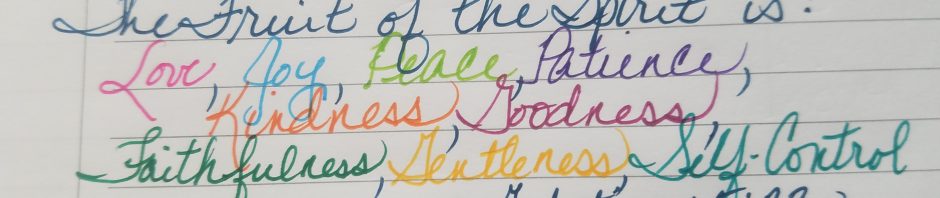 The Fruit of the Spirit is:
Love, Joy, Peace, Patience,
Kindness, Goodness,
Faithfulness, Gentleness, Self-Control